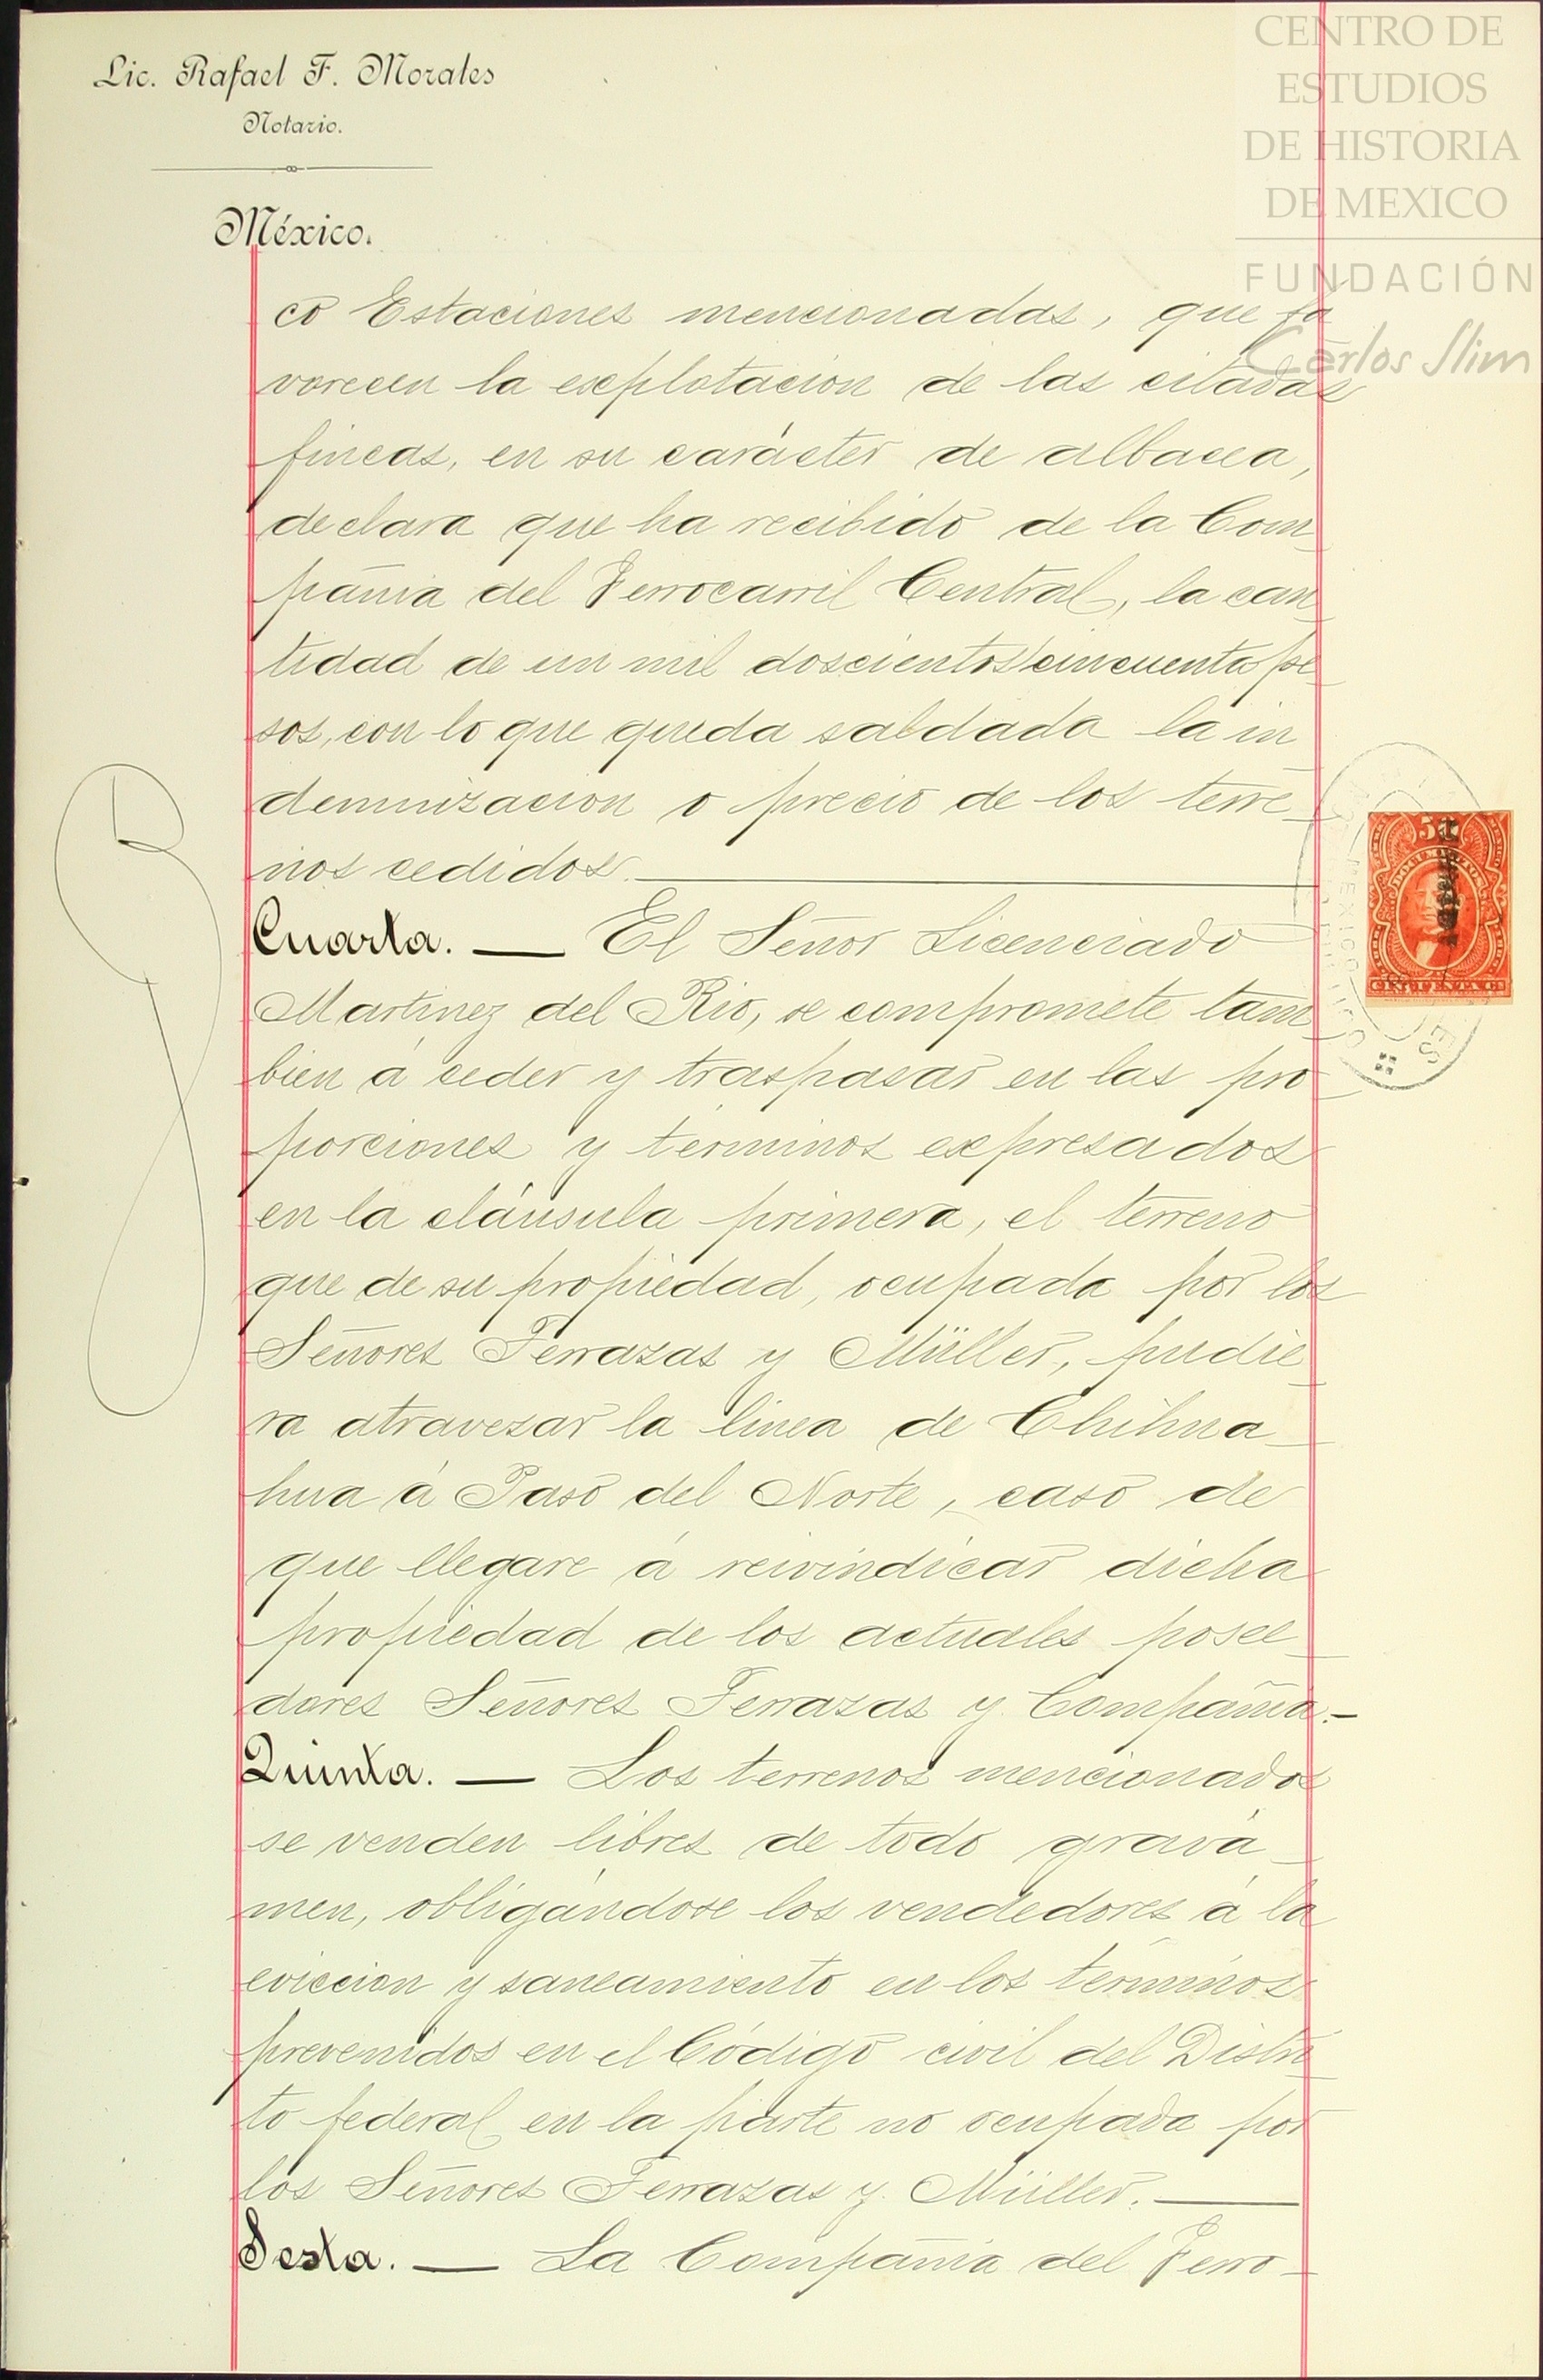 Lic. Rafael F. Morales
Notario.
México.
CENTRO DE
ESTUDIOS
DE HISTORIA
DE MEXICO
FUNDACIÓN
Carlos Slim
co Estaciones mencionadas, que fa
vorecen la esplotacion de las citadas
fincas, en su carácter de albacea,
declara que ha recibido de la Com_
pañia del Ferrocarril Central, la can_
tidad de un mil doscientos cincuenta pe_
sos, con lo que queda saldada la in_
demnizacion o precio de los terre_
nos cedidos.
Cuarta. — El Señor Licenciado
Martinez del Rio, se compromete tam_
bien á ceder y traspasar en las pro_
porciones y términos expresados
en la cláusula primera, el terreno
que de su propiedad, ocupada por los
Señores Terrazas y Müller, pudie_
ra atravezar la linea de Chihua_
hua á Paso del Norte, caso de
que llegare á reivindicar dicha
propiedad de los actuales posee_
dores Señores Terrazas y Compañia.—
Quinta. — Los terrenos mencionados
se venden libres de todo gravá_
men, obligándose los vendedores á la
eviccion y saneamiento en los términos
prevenidos en el Código civil del Distri_
to federal en la parte no ocupada por
los Señores Terrazas y Müller. —
Sesta. — La Compañia del Ferro_
50
DOCUMENTOS
CINCUENTA CS
MEXICO